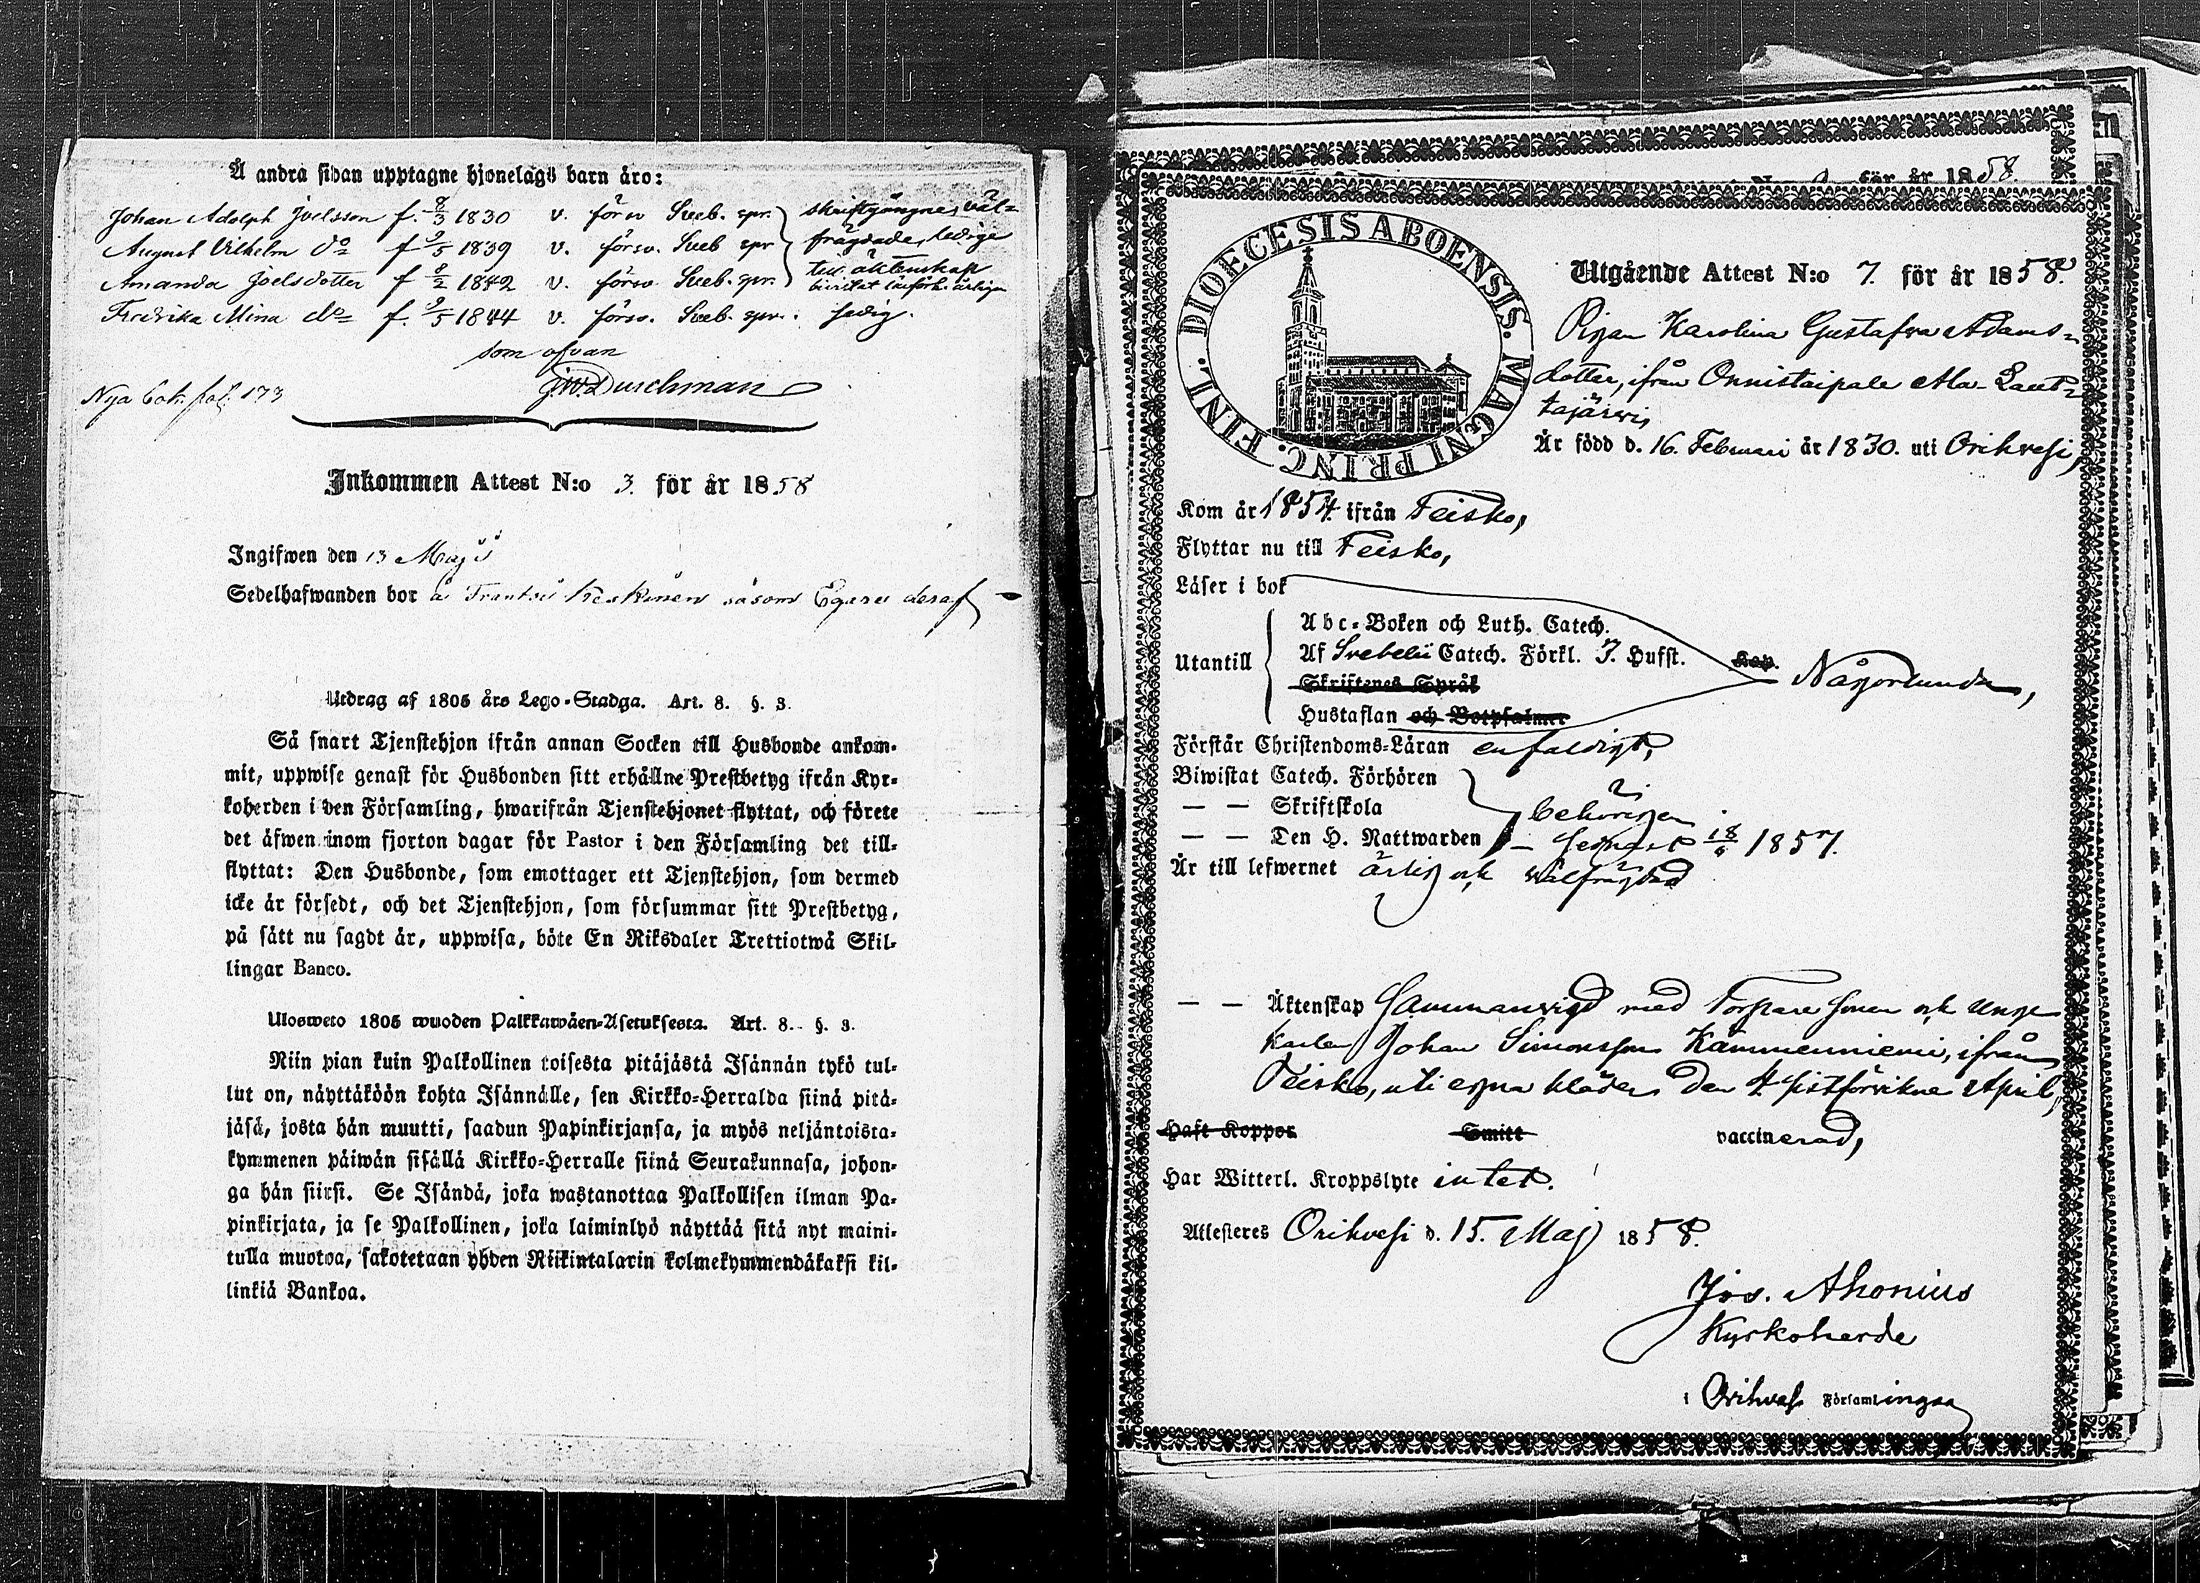 Å andra sidan upptagne hjonelags barn äro:
Johan Adolph Joelsson f. 8/3 1830 v. försv. Sveb. spr. skriftgångne, väl-
August Vilhelm do f. 9/5 1839 v. försv. Sveb spr frägdade, ledige
Amanda Joelsdotter f 8/2 1842 v. försv. Sveb. spr. till äktenskap
Fredrika Mina do f. 9/5 1844 v. försv. Sveb. spr. ledig.
som ofvan
J.W. Durchman
Nya bok. fol. 173
Inkommen Attest N:o 3. för år 1858
Ingifwen den 13 Maji
Sedelhafwanden bor å Frantsi Keskinen såsom Egare deraf
Utdrag af 1805 års Lego-Stadga. Art. 8. §. 3.
Så snart Tjenstehjon ifrån annan Socken till Husbonde ankom-
mit, uppwise genast för Husbonden sitt erhållne Prestbetyg ifrån Kyr-
koherden i den Församling, hwarifrån Tjenstehjonet flyttat, och förete
det äfwen inom fjorton dagar för Pastor i den Församling det till-
flyttat: Den Husbonde, som emottager ett Tjenstehjon, som dermed
icke är försedt, och det Tjenstehjon, som försummar sitt Prestbetyg,
på sätt nu sagdt är, uppwisa, böte En Riksdaler Trettiotwå Skil-
lingar Banco.
Ulosweto 1805 wuoden Palkkawäen-Asetuksesta. Art. 8. §. 3.
Niin pian kuin Palkollinen toisesta pitäjästä Isännän tykö tul-
lut on, näyttäköön kohta Isännälle, sen Kirkko-Herralda siinä pitä-
jäsä, josta hän muutti, saadun Papinkirjansa, ja myös neljäntoista-
kymmenen päiwän sisällä Kirkko-Herralle siinä Seurakunnasa, johon-
ga hän siirsi. Se Isändä, joka wastanottaa Palkollisen ilman Pa-
pinkirjata, ja se Palkollinen, joka laiminlyö näyttää sitä nyt maini-
tulla muotoa, sakotetaan yhden Riikintalarin kolmekymmendäkaksi kil-
linkiä Bankoa.
för år 1858.
DIOECESIS ABOENSIS. MAGNI PRINC. FINL.
Utgående Attest N:o 7. för år 1858.
Pigan Karolina Gustafva Adams-
dotter, ifrån Onnistaipale Ala-Laut-
tajärvi,
Är född d. 16. Februari år 1830. uti Orihvesi,
Kom år 1854. ifrån Teisko,
Flyttar nu till Teisko,
Läser i bok
Abc-Boken och Luth. Catech.
Utantill Af Svebelii Catech. Förkl. 7. Hufst. Kap. Någorlunda,
Skriftenes Språk
Hustaflan och Botpsalmer
Förstår Christendoms-Läran enfaldigt,
Biwistat Catech. Förhören
— — Skriftskola behörigen
— — Den H. Nattwarden – senast 18/6 1857.
Är till lefwernet ärlig och välfrägdad
— — Äktenskap Sammanvigd med Torpare sonen och Unge
karlen Johan Simonsson Kämmenniemi, ifrån
Teisko, uti egna kläder den 4. sistförvikne April,
Haft Koppor Smitt vaccinerad,
Har Witterl. Kroppslyte intet.
Attesteres Orihvesi d. 15. Maj 1858.
Jos. Ahonius
Kyrkoherde
i Orihvesi Församlingar